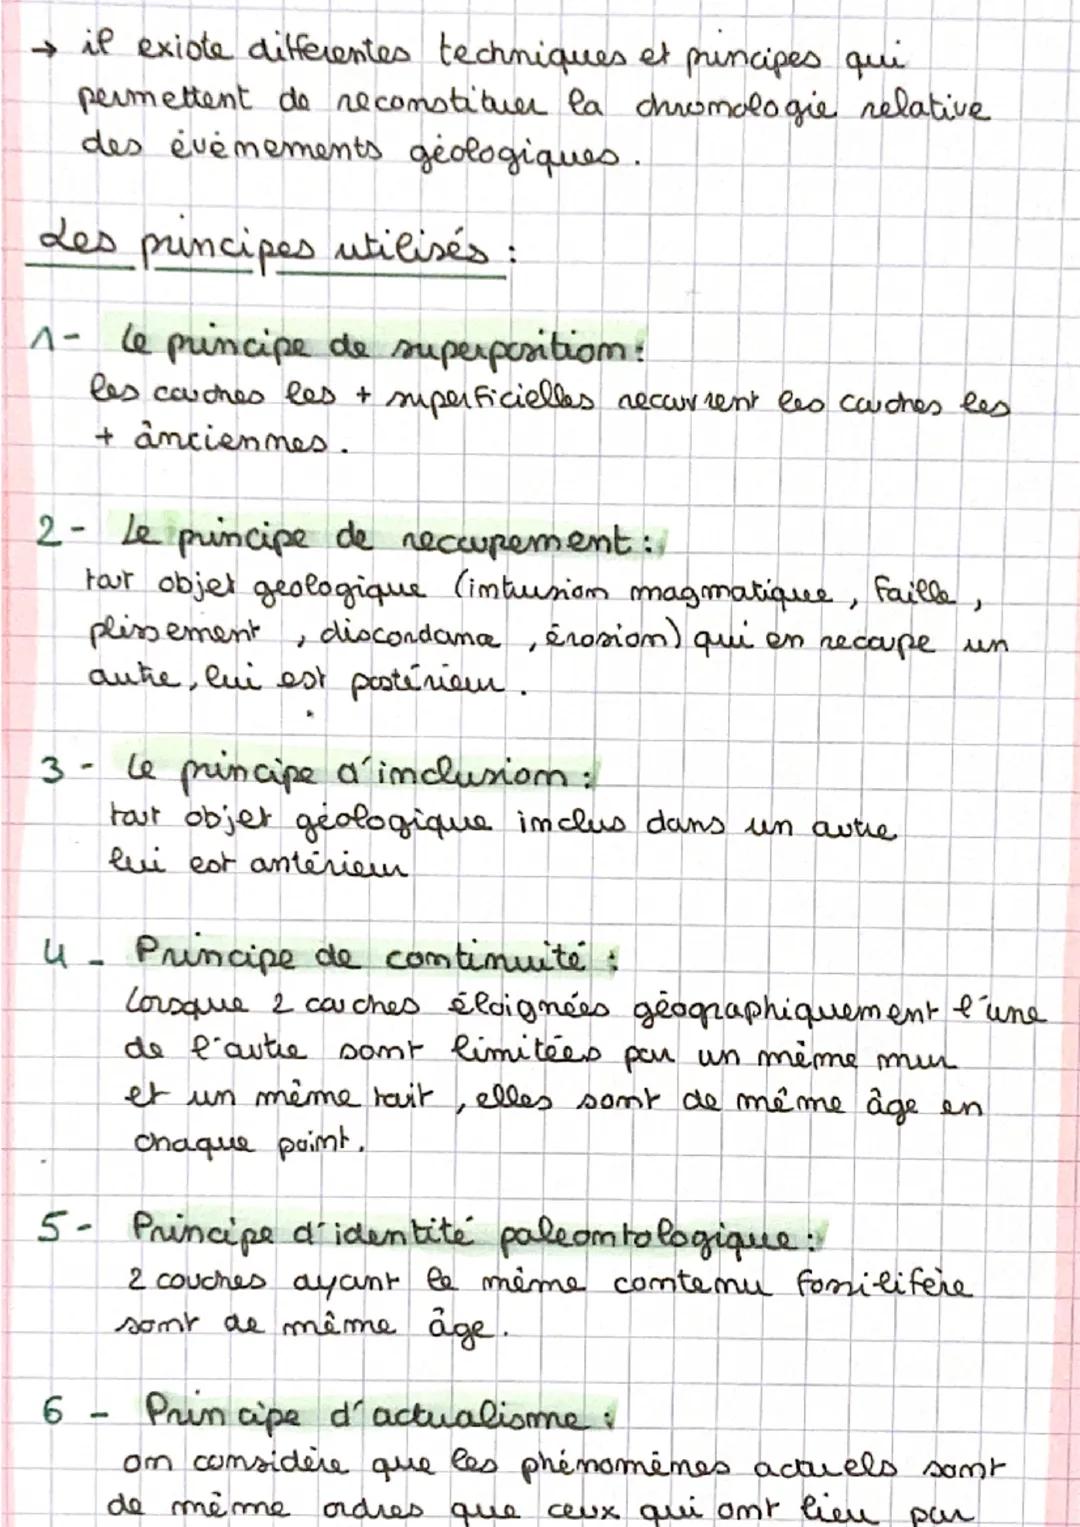 → il existe différentes techniques et principes qui
permettent de reconstituer la chronologie relative
des évènements géologiques.
Les principes utilisés :
1- Le principe de superposition :
les couches les + superficielles recouvrent les couches les
+ ânciennes.
2- Le principe de recoupement :
tout objet geologique (intrusion magmatique, faille,
plissement, discordance, érosion) qui en recoupe un
autre, lui est postérieur.
3- Le principe d'inclusion :
tout objet géologique inclus dans un autre
lui est antérieur
4- Principe de continuité :
Lorsque 2 couches éloignées géographiquement l'une
de l'autre sont limitées par un même mur
et un même toit, elles sont de même âge en
chaque point.
5- Principe d'identité paleontologique :
2 couches ayant le même contenu fossilifère
sont de même âge.
6- Principe d'actualisme :
on considère que les phénomènes actuels sont
de même ordres que ceux qui ont lieu par